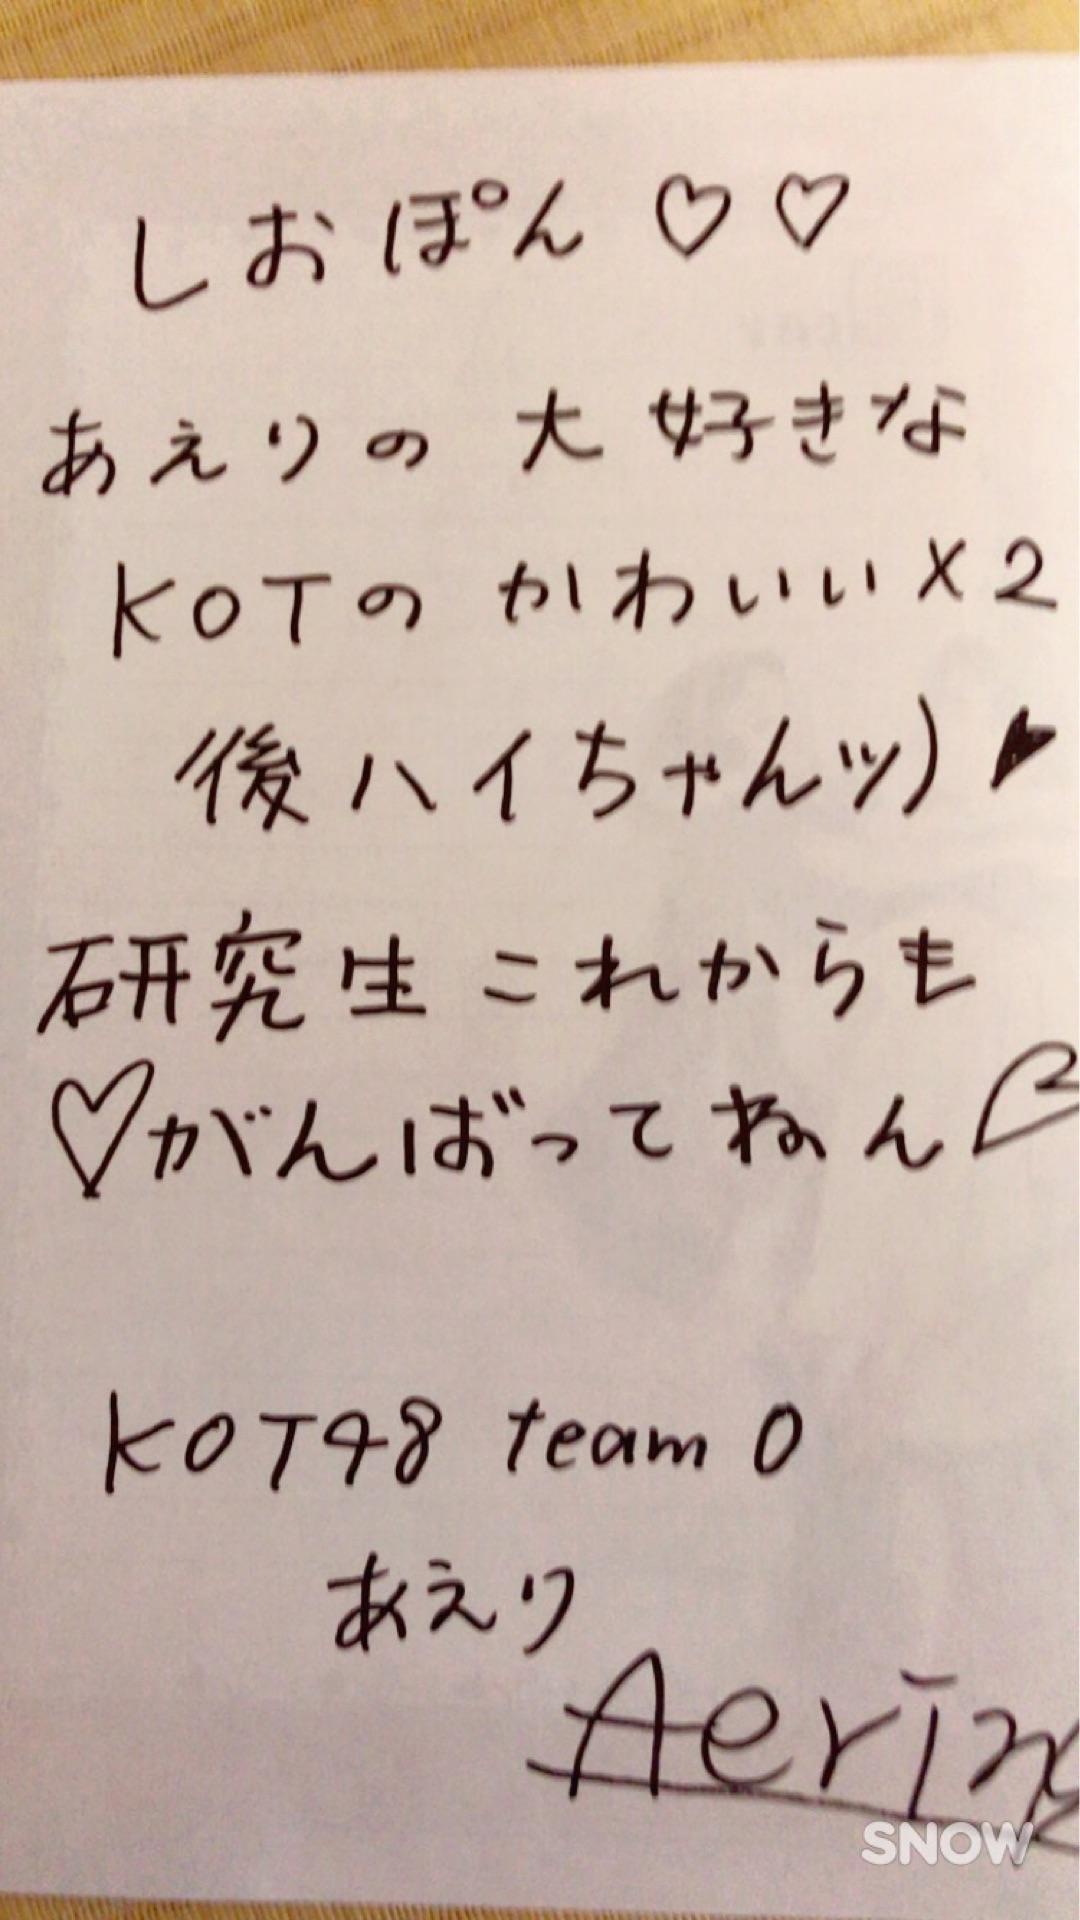 しおぽん♡♡
あえりの大好きな
KOTのかわいい×2
後ハイちゃんッ)♥
研究生これからも
♡がんばってねん♡
KOT48 team O
あえり
Aerin
SNOW